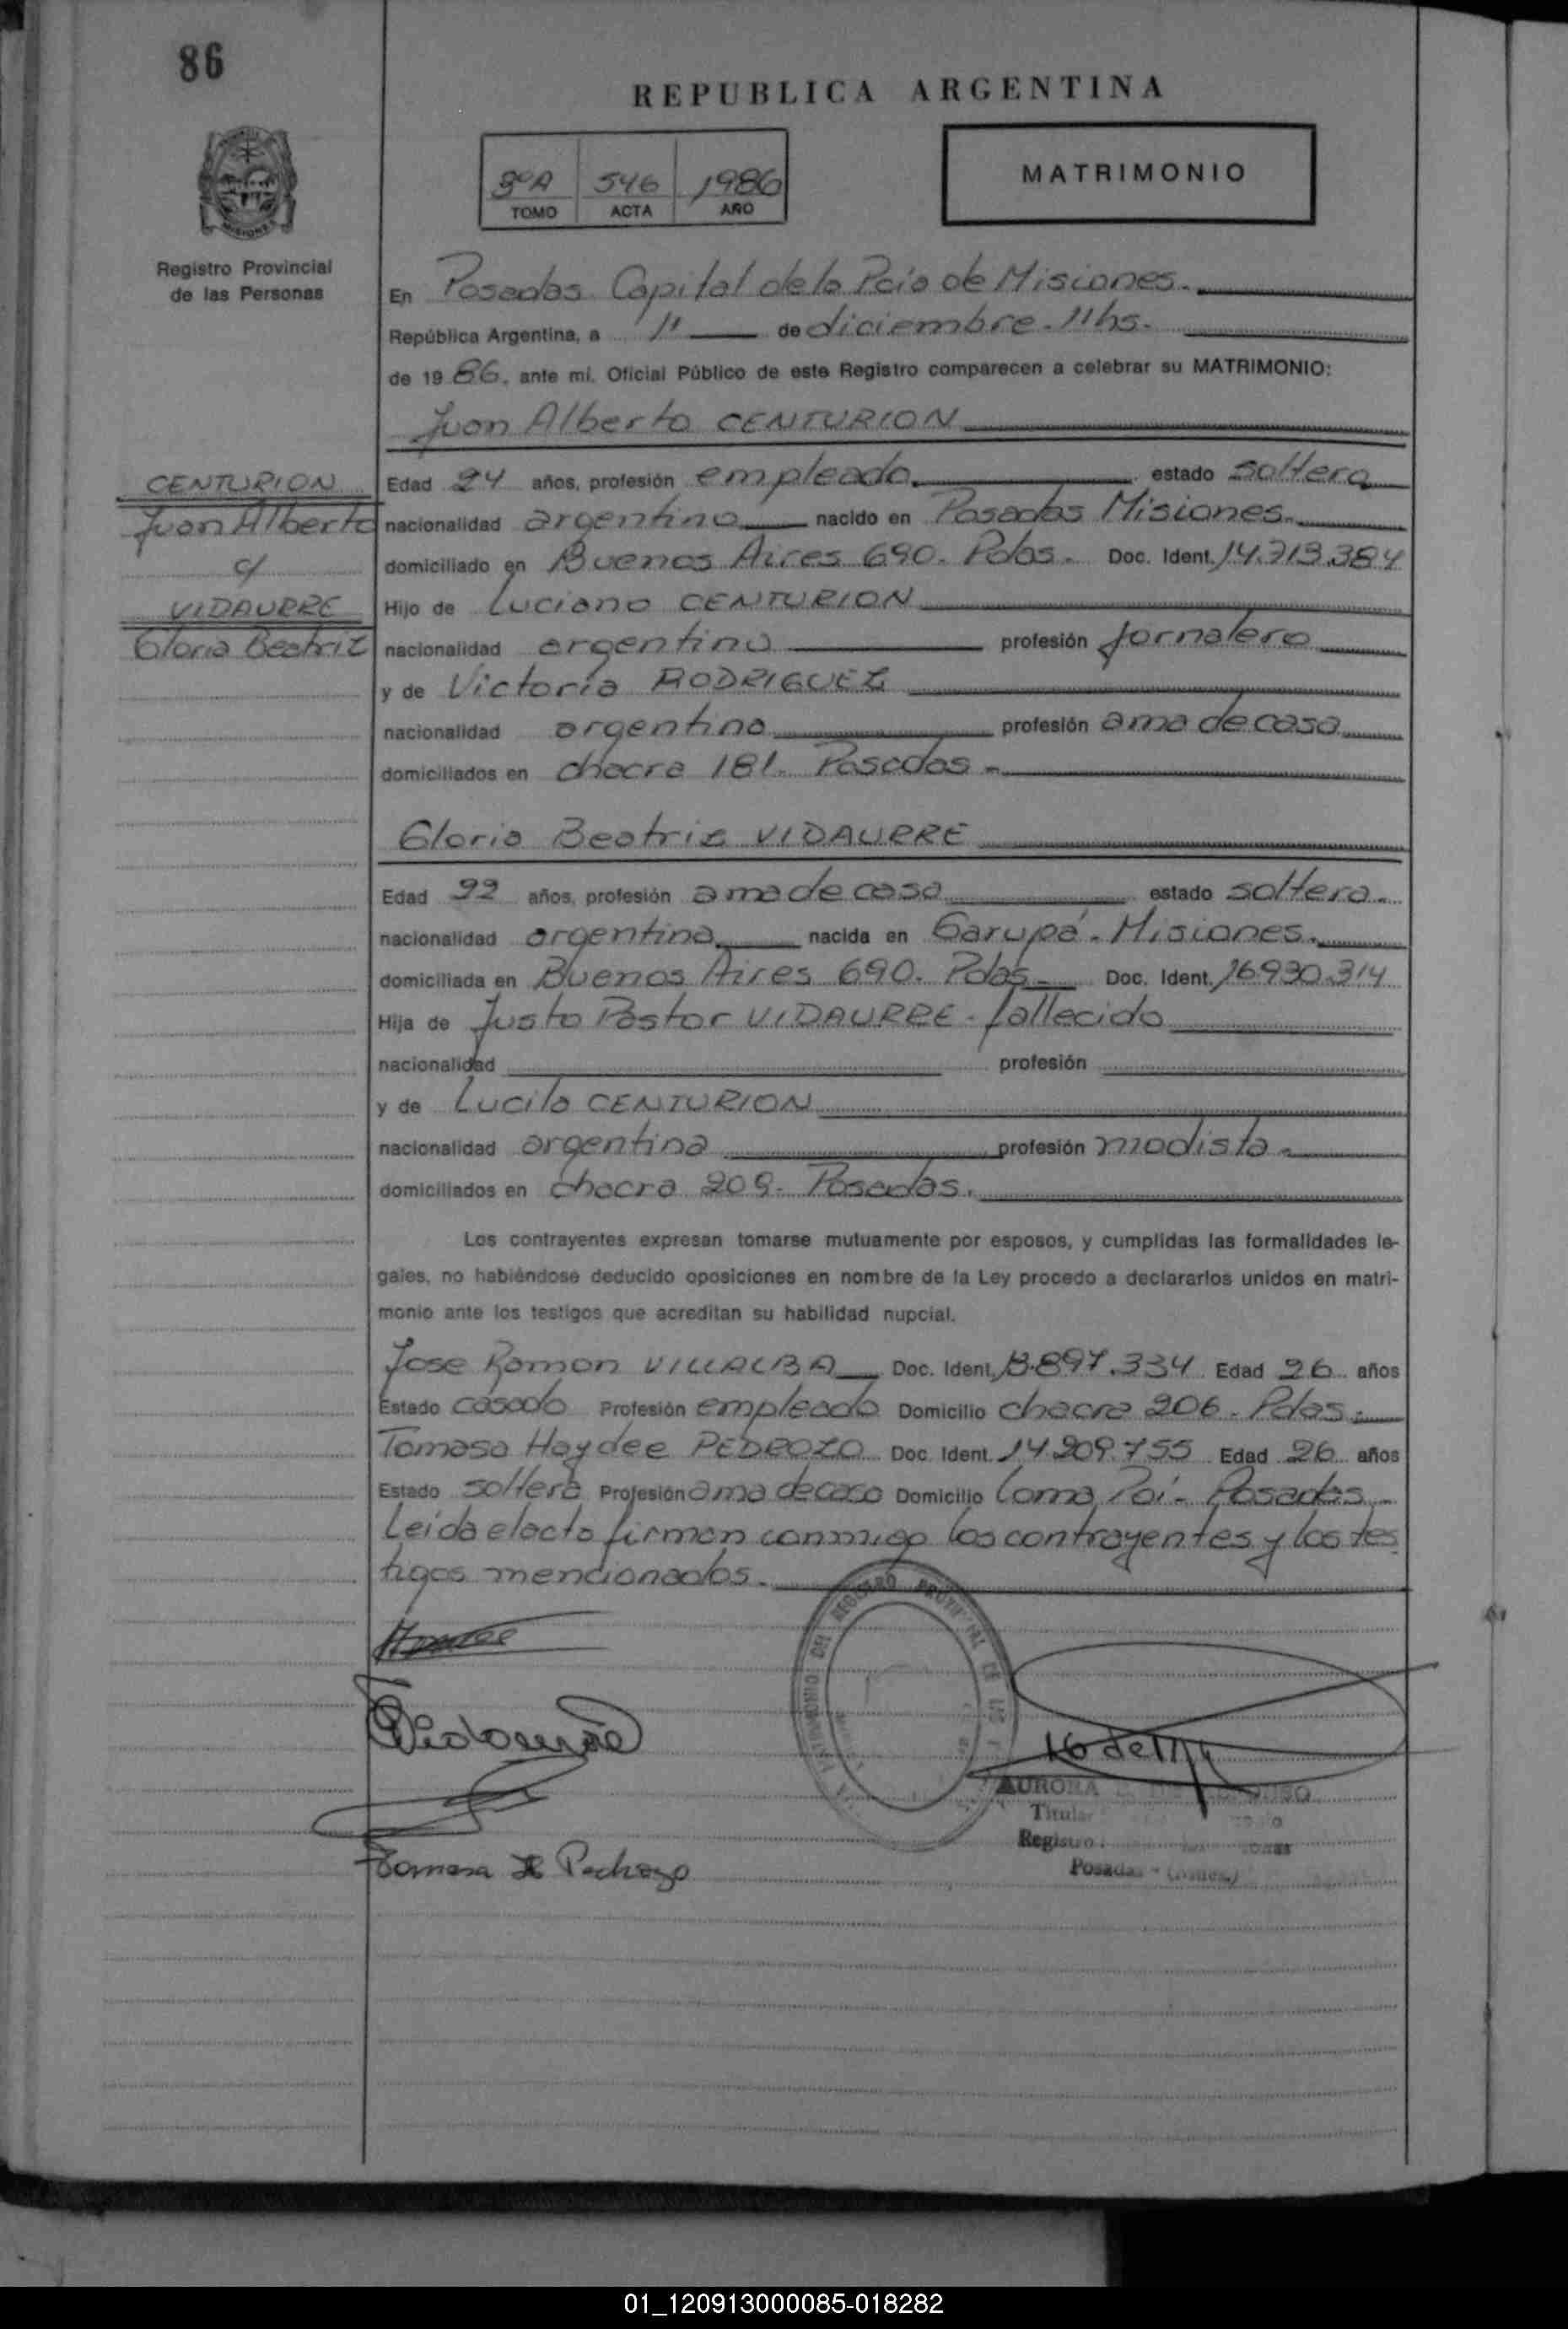 86
REPUBLICA ARGENTINA
3ºA 546 1986
TOMO ACTA AÑO
MATRIMONIO
Registro Provincial
de las Personas
En Posadas Capital de la Pcia de Misiones.
República Argentina, a 11 de diciembre. 11hs.
de 1986. ante mí. Oficial Público de este Registro comparecen a celebrar su MATRIMONIO:
Juan Alberto CENTURION
CENTURION
Juan Alberto
c/
VIDAURRE
Gloria Beatriz
Edad 24 años, profesión empleado. estado soltero
nacionalidad argentino nacido en Posadas Misiones.
domiciliado en Buenos Aires 690. Pdas. Doc. Ident. 14.713.384
Hijo de Luciano CENTURION
nacionalidad argentino profesión jornalero
y de Victoria RODRIGUEZ
nacionalidad argentina profesión ama de casa
domiciliados en chacra 181. Posadas -
Gloria Beatriz VIDAURRE
Edad 22 años, profesión ama de casa estado soltera.
nacionalidad argentina nacida en Garupá. Misiones.
domiciliada en Buenos Aires 690. Pdas. Doc. Ident. 16.930.314
Hija de Justo Pastor VIDAURRE - fallecido
nacionalidad profesión
y de Lucila CENTURION
nacionalidad argentina profesión modista
domiciliados en chacra 209. Posadas.
Los contrayentes expresan tomarse mutuamente por esposos, y cumplidas las formalidades le-
gales, no habiéndose deducido oposiciones en nombre de la Ley procedo a declararlos unidos en matri-
monio ante los testigos que acreditan su habilidad nupcial.
Jose Ramon VILLALBA Doc. Ident. 13.897.334 Edad 26 años
Estado casado Profesión empleado Domicilio chacra 206. Pdas.
Tomasa Haydee PEDROZO Doc. Ident. 14.209.755 Edad 26 años
Estado soltera Profesión ama de casa Domicilio Loma Poi - Posadas
Leida el acta firman conmigo los contrayentes y los tes
tigos mencionados.
Tomasa H Pedrozo
AURORA
Titular
Registro
Posadas
01_120913000085-018282